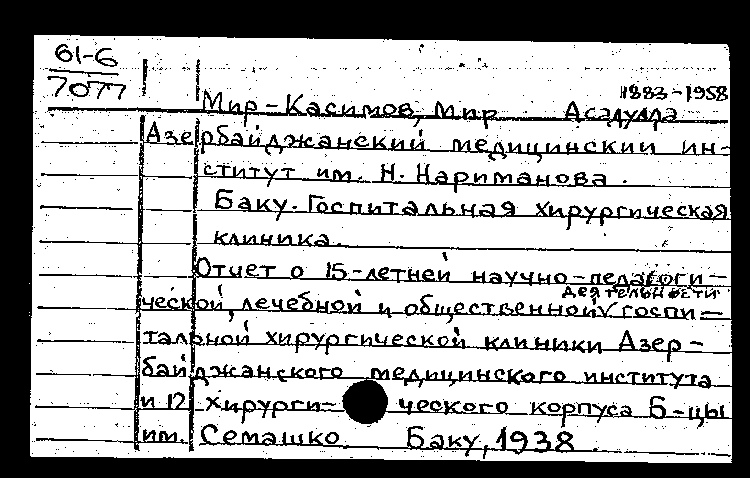 61-6
7077
1883-1958
Мир-Касимов, Мир Асадулла
Азербайджанский медицинский ин-
ститут им. Н. Нариманова.
Баку. Госпитальная хирургическая
клиника.
Отчет о 15-летней научно-педагоги-
деятельности
ческой, лечебной и общественной V госпи-
тальной хирургической клиники Азер-
байджанского медицинского института
и 12 хирурги- ческого корпуса Б-цы
им. Семашко. Баку, 1938.